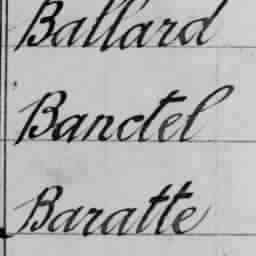 Ballard
Banctel
Baratte